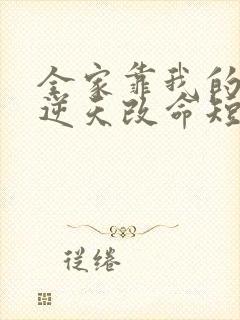 全家靠我的
逆天改命短
從绻